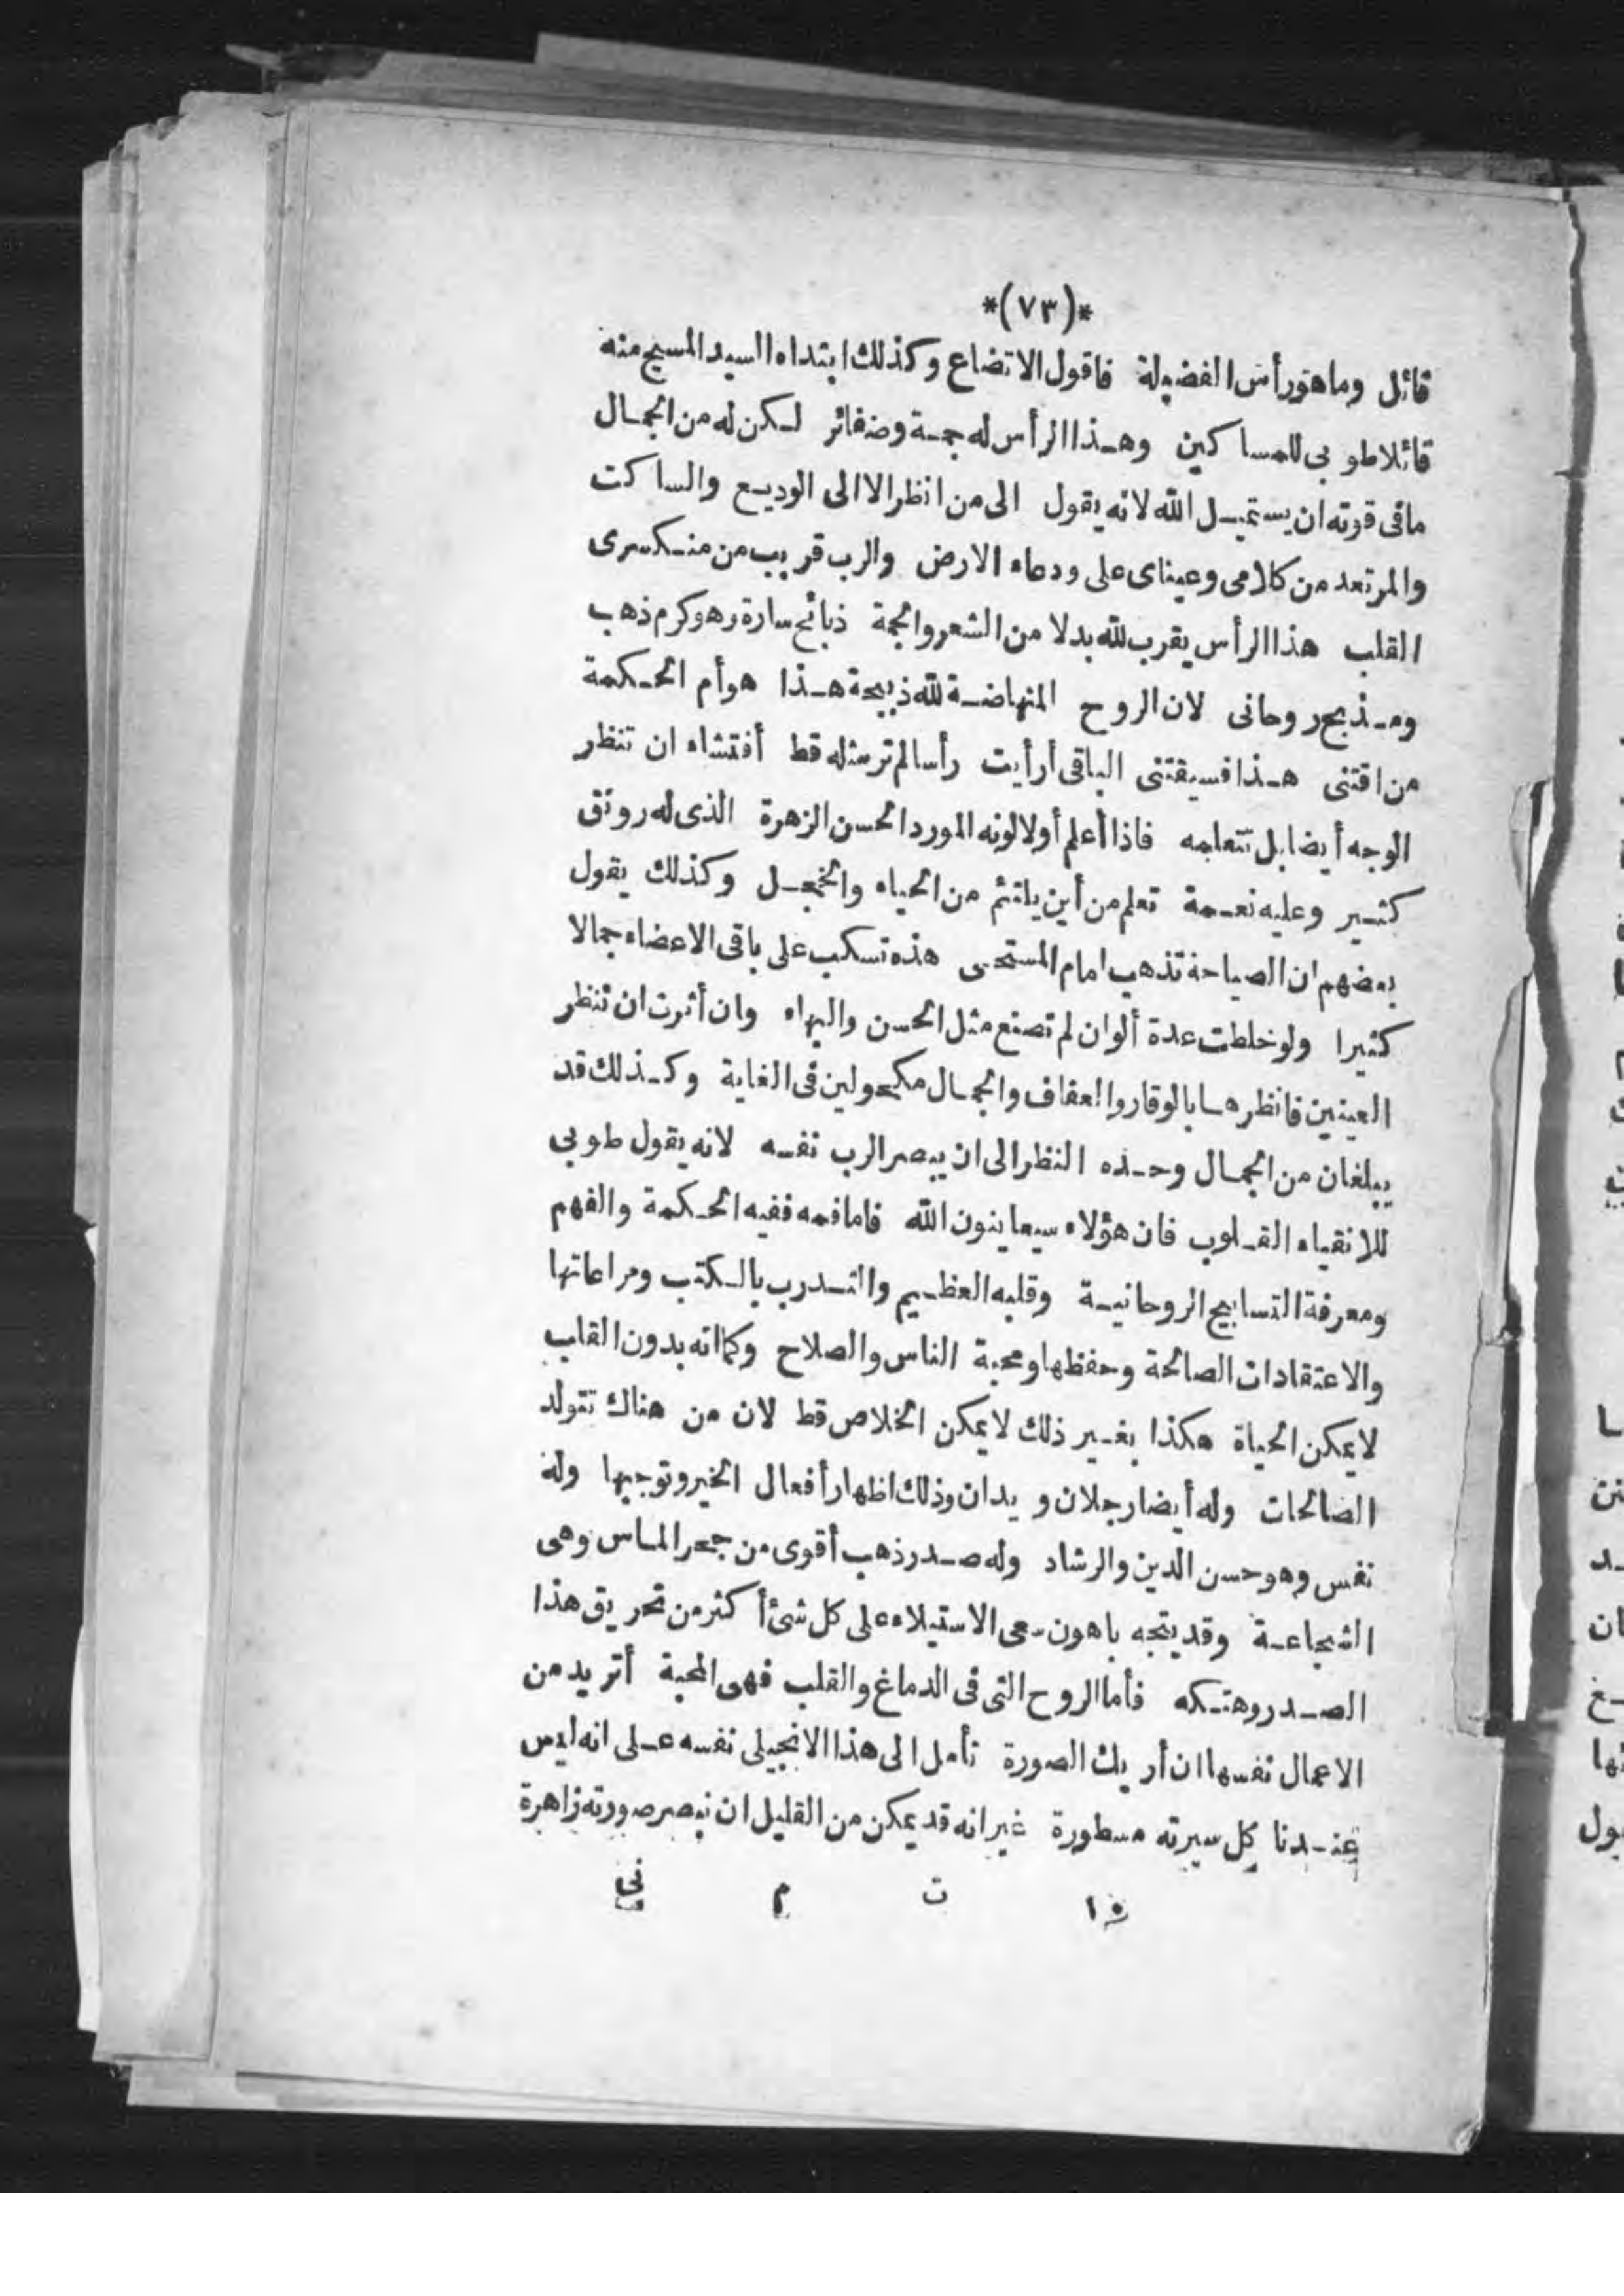 *(٧٣)*
قائل وما هو رأس الفضيلة فاقول الاتضاع وكذلك ابتداء السيد المسيح منه
قائلا طوبى للمساكين وهذا الرأس له جمة وضفائر لكن له من الجمال
ما فى قوته ان يستميل الله لانه يقول الى من انظر الا الى الوديع والساكت
والمرتعد من كلامى وعيناى على ودعاء الارض والرب قريب من منكسرى
القلب هذا الرأس يقرب لله بدلا من الشعر والجمة ذبائح سارة وهو كرم ذهب
ومذبح روحانى لان الروح المتهاضة لله ذبيحة هذا هو أم الحكمة
من اقتنى هذا فسيقتنى الباقى أرأيت رأسا لم تر مثله قط أفتشاء ان تنظر
الوجه أيضا بل تتعلمه فاذا أعلم أولا لونه المورد الحسن الزهرة الذى له رونق
كثير وعليه نعمة تعلم من أين يلتئم من الحياء والخجل وكذلك يقول
بعضهم ان الصباحة تذهب امام المستحى هذه تسكب على باقى الاعضاء جمالا
كثيرا ولو خلطت عدة ألوان لم تصنع مثل الحسن والبهاء وان أثرت ان تنظر
العينين فانظرهما بالوقار والعفاف والجمال مكحولين فى الغاية وكذلك قد
يبلغان من الجمال وحده النظر الى ان يبصر الرب نفسه لانه يقول طوبى
للانقياء القلوب فان هؤلاء سيعاينون الله فاما فمه ففيه الحكمة والفهم
ومعرفة التسابيح الروحانية وقلبه العظيم والتدرب بالكتب ومراعاتها
والاعتقادات الصالحة وحفظها ومحبة الناس والصلاح وكما انه بدون القلب
لا يمكن الحياة هكذا بغير ذلك لا يمكن الخلاص قط لان من هناك تتولد
الصالحات وله أيضا رجلان ويدان وذلك اظهار أفعال الخير وتوجيها وله
نفس وهو حسن الدين والرشاد وله صدر ذهب أقوى من حجر الماس وهى
الشجاعة وقد يتجه باهون سعى الاستيلاء على كل شئ أكثر من تحريق هذا
الصدر وهتكه فأما الروح التى فى الدماغ والقلب فهى المحبة أتريد من
الاعمال نفسها ان أريك الصورة تأمل الى هذا الانجيلى نفسه على انه ليس
عندنا كل سيرته مسطورة غير انه قد يمكن من القليل ان نبصر صورته زاهرة
١٠ ت م نى